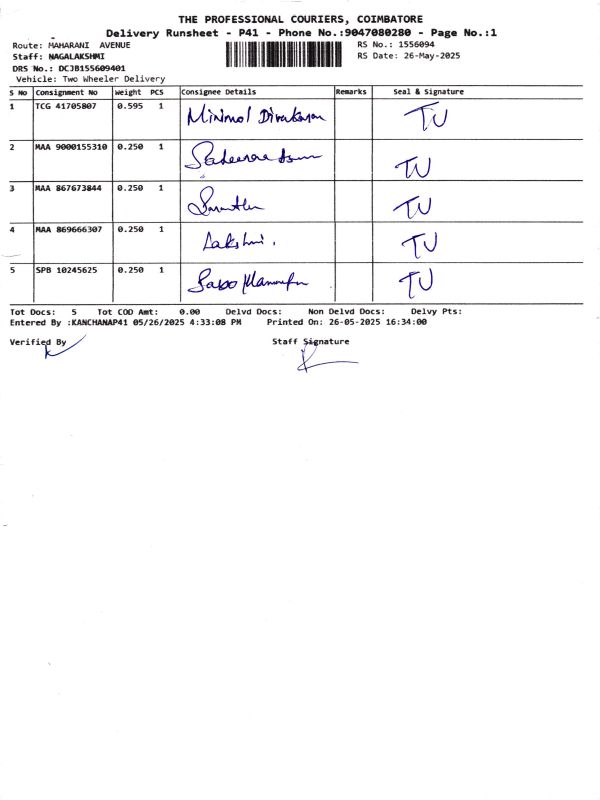 THE PROFESSIONAL COURIERS, COIMBATORE
Delivery Runsheet - P41 - Phone No.:9047080280 - Page No.:1
Route: MAHARANI AVENUE RS No.: 1556094
Staff: NAGALAKSHMI RS Date: 26-May-2025
DRS No.: DCJB155609401
Vehicle: Two Wheeler Delivery
S No Consignment No Weight PCS Consignee Details Remarks Seal & Signature
1 TCG 41705807 0.595 1 Minimol Divakaran TU
2 MAA 9000155310 0.250 1 TU
3 MAA 867673844 0.250 1 TU
4 MAA 869666307 0.250 1 Lakshmi. TU
5 SPB 10245625 0.250 1 TU
Tot Docs: 5 Tot COD Amt: 0.00 Delvd Docs: Non Delvd Docs: Delvy Pts:
Entered By :KANCHANAP41 05/26/2025 4:33:08 PM Printed On: 26-05-2025 16:34:00
Verified By Staff Signature